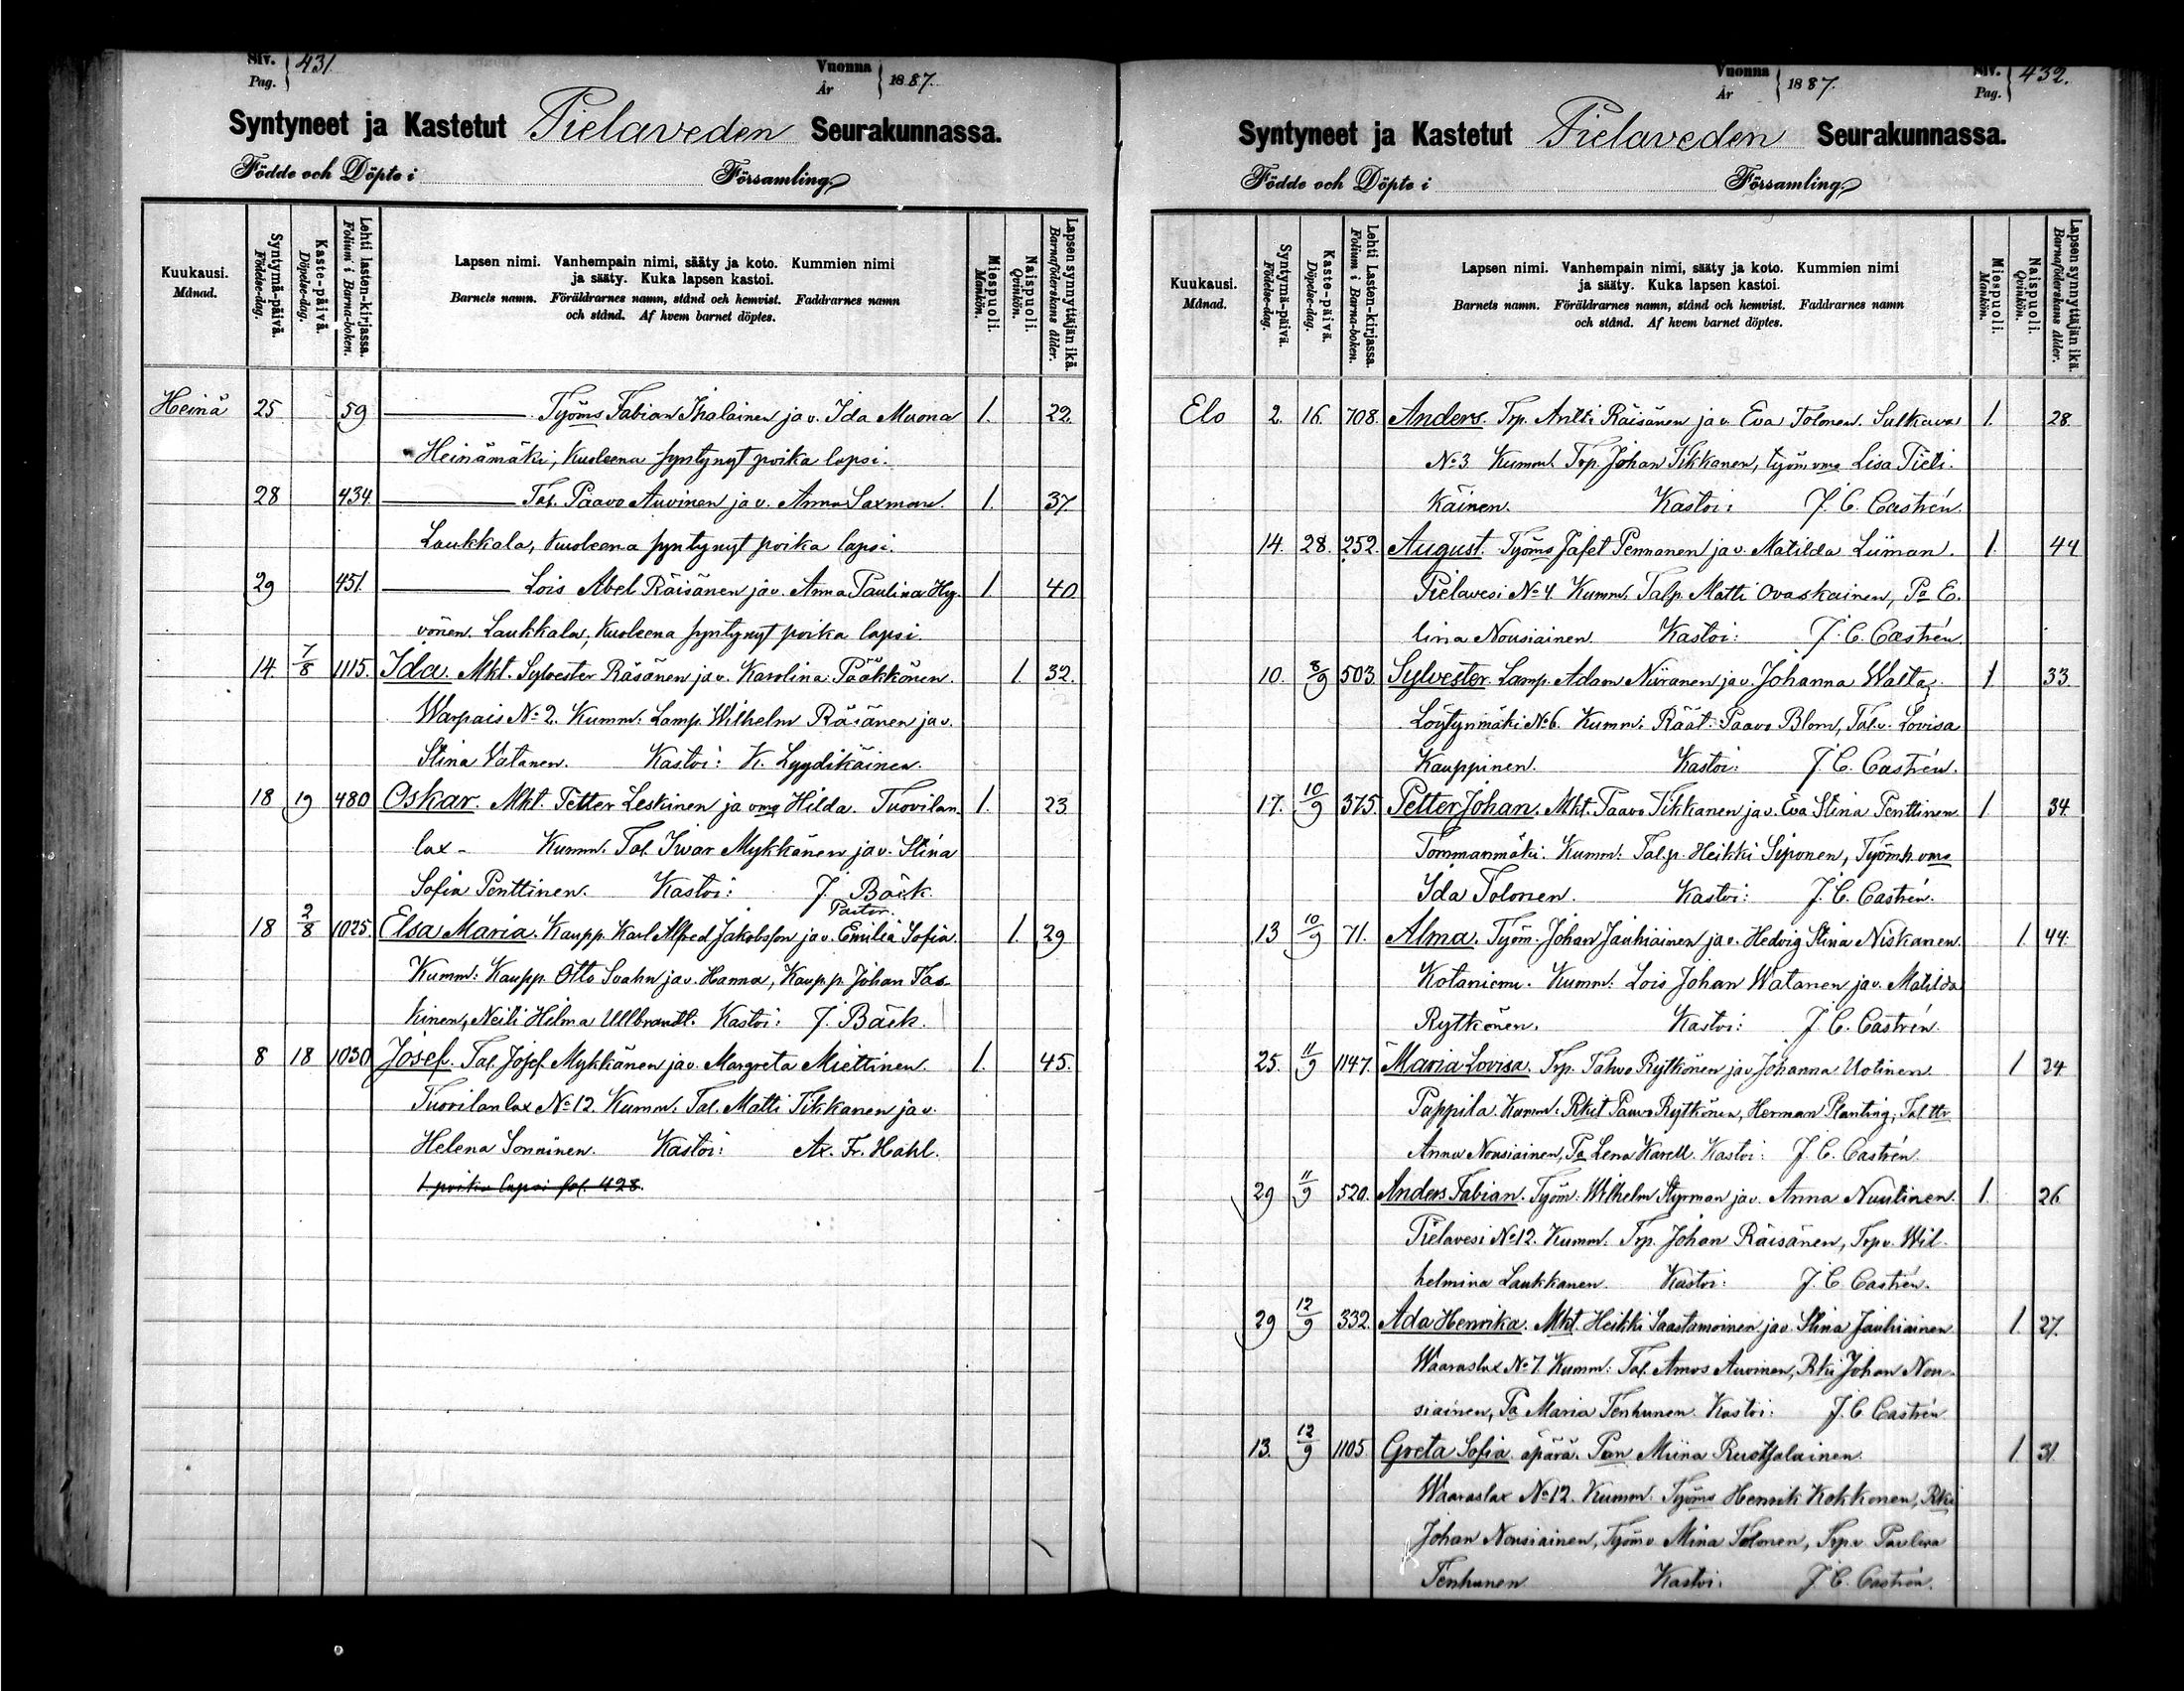 Siv. Pag. 431.
Vuonna År 1887.
Syntyneet ja Kastetut Pielaveden Seurakunnassa.
Födde och Döpte i Församling.
Kuukausi. Månad.
Syntymä-päivä. Födelse-dag.
Kaste-päivä. Döpelse-dag.
Lehti lasten-kirjassa. Folium i Barna-boken.
Lapsen nimi. Vanhempain nimi, sääty ja koto. Kummien nimi
ja sääty. Kuka lapsen kastoi.
Barnets namn. Föräldrarnes namn, stånd och hemvist. Faddrarnes namn
och stånd. Af hvem barnet döptes.
Miespuoli. Mankön.
Naispuoli. Qvinkön.
Lapsen synnyttäjän ikä. Barnaföderskans ålder.
Heinä 25 59 Työms Fabian Ihalainen ja v. Ida Muona 1. 22.
Heinämäki, Kuoleena syntynyt poika lapsi.
28 434 Tal. Paavo Auvinen ja v. Anna Saxman. 1. 37
Laukkala, Kuoleena syntynyt poika lapsi.
29 451. Lois Abel Räisänen ja v. Anna Paulina Hy- 1 40
vönen. Laukkala, Kuoleena syntynyt poika lapsi.
14. 7/8 1115. Ida. Mkt. Sylvester Räsänen ja v. Karolina Pääkkönen. 1. 32.
Warpais No 2. Kumm: Lamp. Wilhelm Räsänen ja v.
Stina Vatanen. Kastoi: K. Lyydikäinen.
18 19 480 Oskar. Mkt. Petter Leskinen ja vmo Hilda. Tuovilan- 1. 23
lax - Kumm. Tal. Iwar Mykkänen ja v. Stina
Sofia Penttinen. Kastoi: J. Bäck.
Pastor.
18 2/8 1025. Elsa Maria. Kaupp. Karl Alfred Jakobsson ja v. Emilia Sofia. 1. 29
Kumm: Kaupp. Otto Svahn ja v. Hanna, Kaupp. Johan Tas-
kinen, Neiti Hilma Ullbrandt. Kastoi: J. Bäck.
8 18 1030 Josef. Tal. Josef Mykkänen ja v. Margreta Miettinen. 1. 45.
Tuovilanlax No 12. Kumm. Tal. Matti Tikkanen ja v.
Helena Sonninen. Kastoi: Ax. Fr. Hahl.
1 poika lapsi fol. 428.
Vuonna År 1887.
Siv. Pag. 432.
Syntyneet ja Kastetut Pielaveden Seurakunnassa.
Födde och Döpte i Församling.
Kuukausi. Månad.
Syntymä-päivä. Födelse-dag.
Kaste-päivä. Döpelse-dag.
Lehti Lasten-kirjassa. Folium i Barna-boken.
Lapsen nimi. Vanhempain nimi, sääty ja koto. Kummien nimi
ja sääty. Kuka lapsen kastoi.
Barnets namn. Föräldrarnes namn, stånd och hemvist. Faddrarnes namn
och stånd. Af hvem barnet döptes.
Miespuoli. Mankön.
Naispuoli. Qvinkön.
Lapsen synnyttäjän ikä. Barnaföderskans ålder.
Elo 2. 16. 708. Anders. Trp. Antti Räisänen ja v. Eva Tolonen. Sulkava 1. 28.
No 3 Kumm. Trp. Johan Tikkanen, työm vmo Lisa Pieti-
käinen. Kastoi: J. C. Castrén.
14. 28. 252. August. Työms Jafet Pennanen ja v. Matilda Liiman. 1. 44
Pielavesi No 4. Kumm. Talp. Matti Ovaskainen, Pa E-
lina Nousiainen. Kastoi: J. C. Castrén.
10. 8/9 503 Sylvester. Lamp. Adam Niiranen ja v. Johanna Walta, 1. 33.
Löytynmäki No 6. Kumm. Räät. Paavo Blom, Tal.v. Lovisa
Kauppinen. Kastoi: J. C. Castrén.
17. 10/9 375. Petter Johan. Mkt. Paavo Tikkanen ja v. Eva Stina Penttinen 1. 34.
Tommanmäki. Kumm: Tal.p. Heikki Siponen, Työmh. vmo
Ida Tolonen. Kastoi: J. C. Castrén.
13 10/9 71. Alma. Työm. Johan Jauhiainen ja v. Hedvig Stina Niskanen. 1. 44.
Kotaniemi. Kumm: Lois Johan Watanen ja v. Matilda
Rytkönen. Kastoi: J. C. Castrén.
25. 11/9 1147. Maria Lovisa. Trp. Tahvo Rytkönen ja v Johanna Uotinen 1 24
Pappila. Kumm: Rkit Paavo Rytkönen, Herman Planting, Tal. ttr
Anna Nousiainen, Pa Lena Karell. Kastoi: J. C. Castrén.
29 11/9 520. Anders Fabian. Työm: Wilhelm Styrman ja v. Anna Nuutinen. 1. 26
Pielavesi No 12. Kumm. Trp. Johan Räisänen, Trp v. Wil-
helmina Laukkanen. Kastoi: J. C. Castrén.
29 12/9 332. Ada Henrika. Mkt. Heikki Saastamoinen ja v. Stina Jauhiainen 1. 27.
Waaraslax No 7. Kumm: Tal. Amos Auvinen, Rki Johan Nou-
siainen, Pa Maria Tenhunen. Kastoi: J. C. Castrén
13. 12/9 1105. Greta Sofia. äpärä. Pan Miina Ruotsalainen. 1. 31
Waaraslax No 12. Kumm. Työms Henrik Kokkonen, Rki
Johan Nousiainen, Työm v Mina Tolonen, Trp v. Paulina
Tenhunen Kastoi: J. C. Castrén.